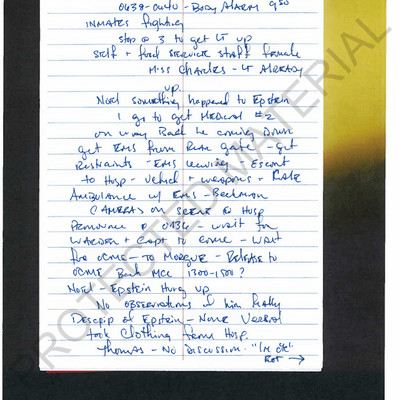 0638-0640 - Body Alarm 950
INMATES Fighting
stop @ 3 to get LT up
self + food service staff female
Miss Charles - LT Already
up.
Noel something happened to Epstein
I go to get Medical #2
on way Back he coming down
get EMS from Rear gate - get
Restraints - EMS - Escort
to Hosp - Vehicle + weapons +
Ambulance w/ EMS - Beekman
CAMERAS on scene @ Hosp
Pronounce @ 0736 - wait for
WARDEN + Capt to come - WAIT
for OCME - TO MORGUE - Release to
OCME Back MCC 1300-1500 ?
Noel - Epstein Hung up
No observations of him
Descrip of Epstein - None Verbal
took Clothing from Hosp.
Thomas - No Discussion. "I'm ok"
→
PROTECTED MATERIAL